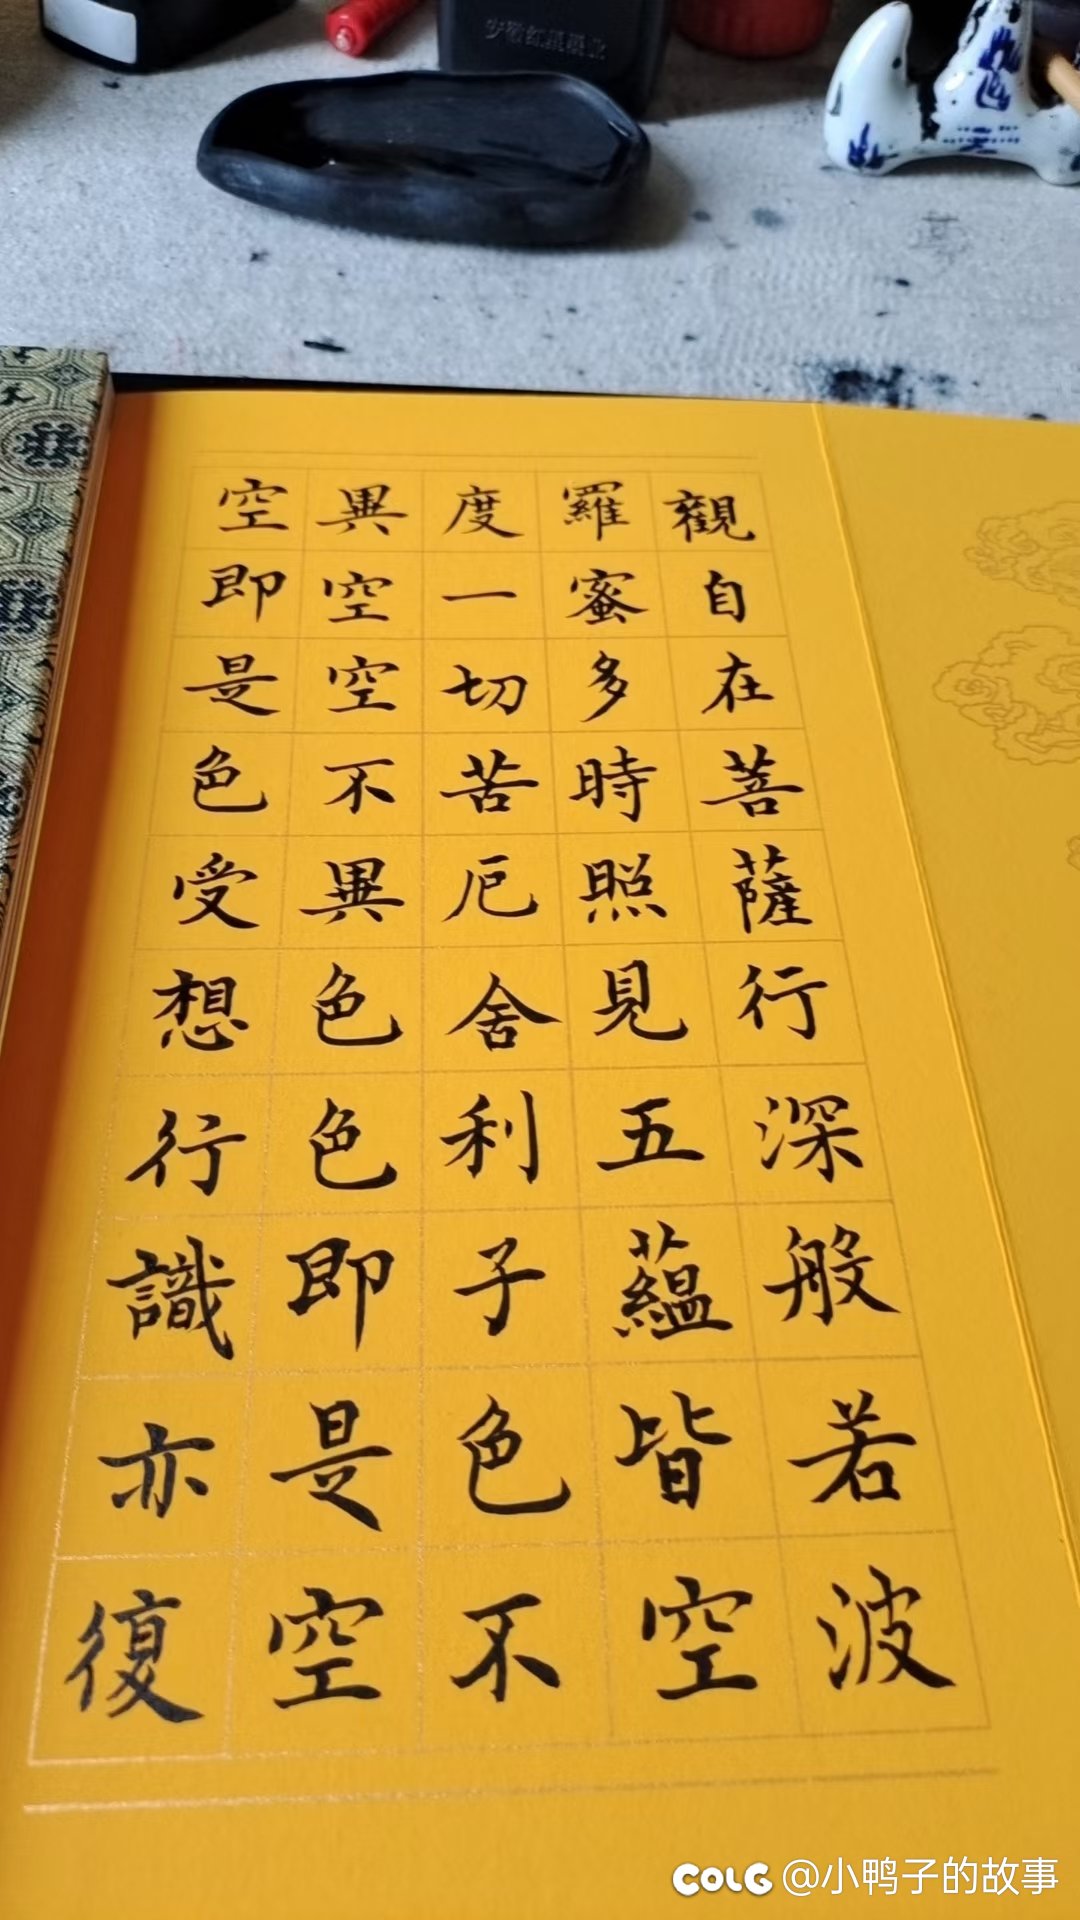 觀自在菩薩行深般若波
羅蜜多時照見五蘊皆空
度一切苦厄舍利子色不
異空空不異色色即是空
空即是色受想行識亦復
COLG @小鸭子的故事